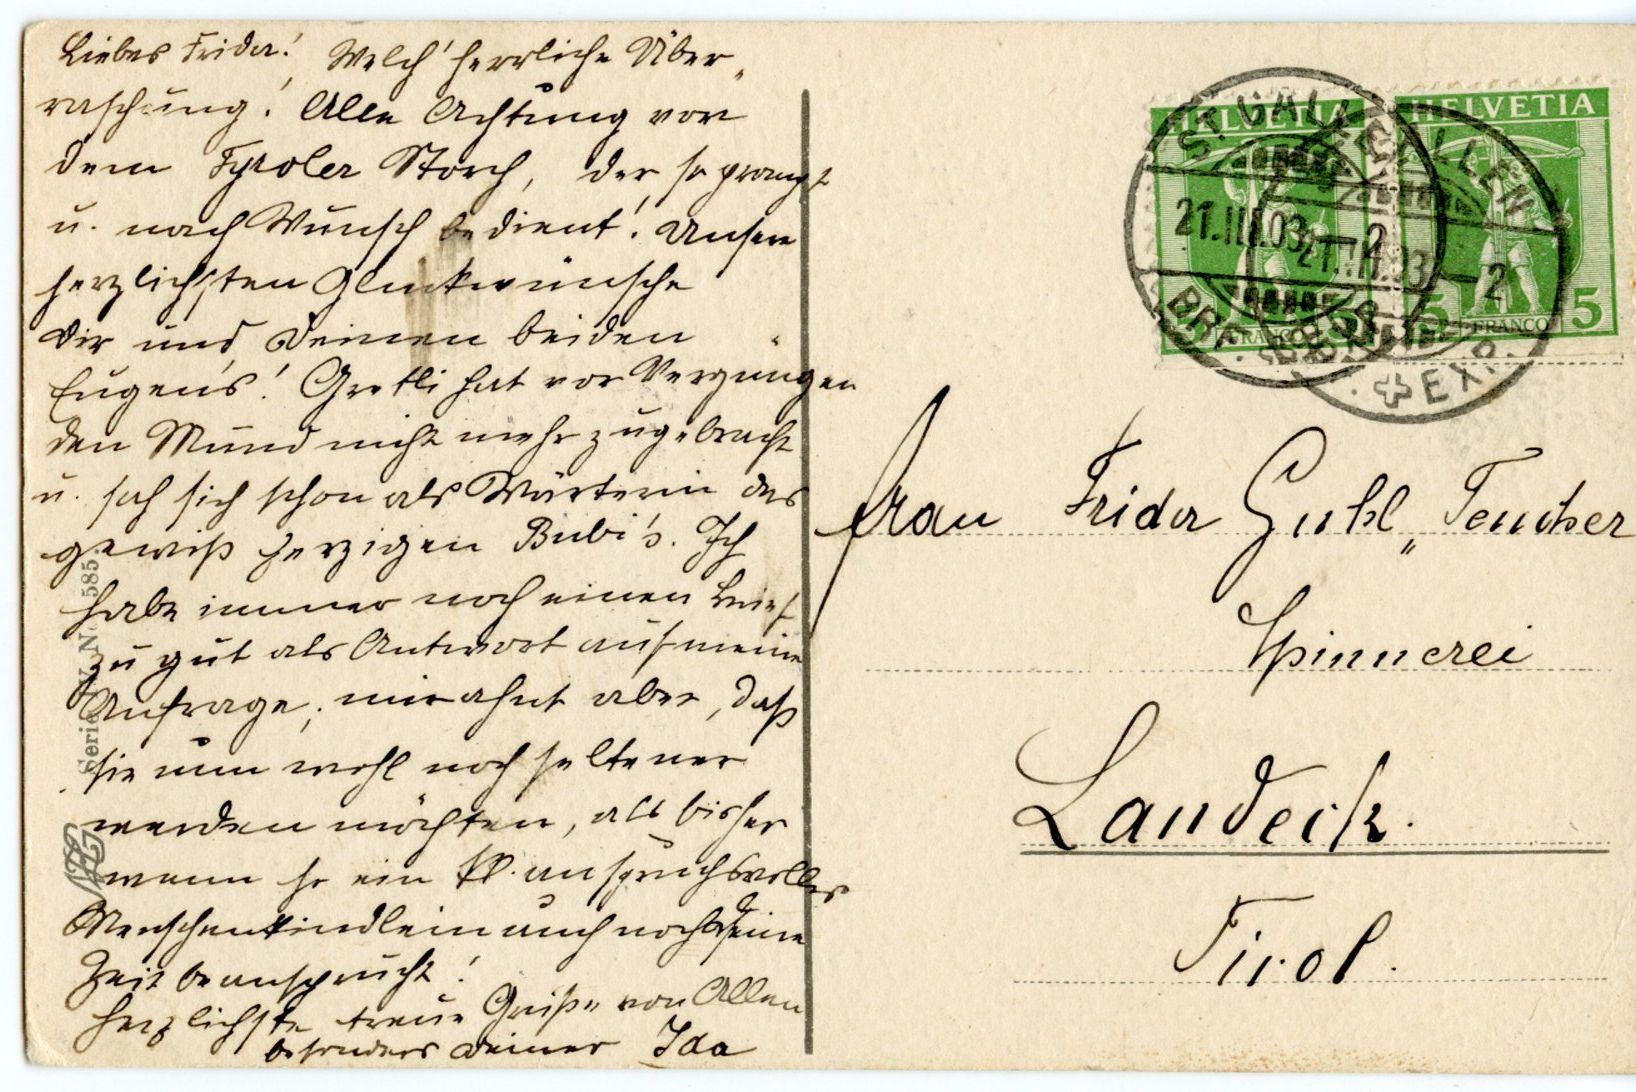 Liebes Frida! Welch' herrliche Über„
raschung! Alle Achtung vor
dem Tyroler Storch, der so prompt
u. nach Wunsch bedient! Unsere
herzlichsten Glückwünsche
Dir und Deinen beiden
Eugen's! Gretli hat vor Vergnügen
den Mund nicht mehr zugebracht
u. sah sich schon als Wärterin des
gewiß herzigen Bubi's. Ich
habe immer noch einen Brief
zu gut als Antwort auf meine
Anfrage; mir ahnt aber, daß
sie nun wohl noch seltener
werden möchten, als bisher
wenn so ein kl. anspruchsvolles
Menschenkindlein auch noch Deine
Zeit beansprucht!
Herzlichste treue Grüße von Allen
besonders Deiner Ida
Serie N 585
HELVETIA
HELVETIA
FRANCO
5 FRANCO 5
ST. GALLEN
21.III.03 – 2
BRF. EXP.
ST. GALLEN
21.III.03 – 2
BRF. EXP.
Frau Frida Guhl„ Teucher
Spinnerei
Landeck.
Tirol.